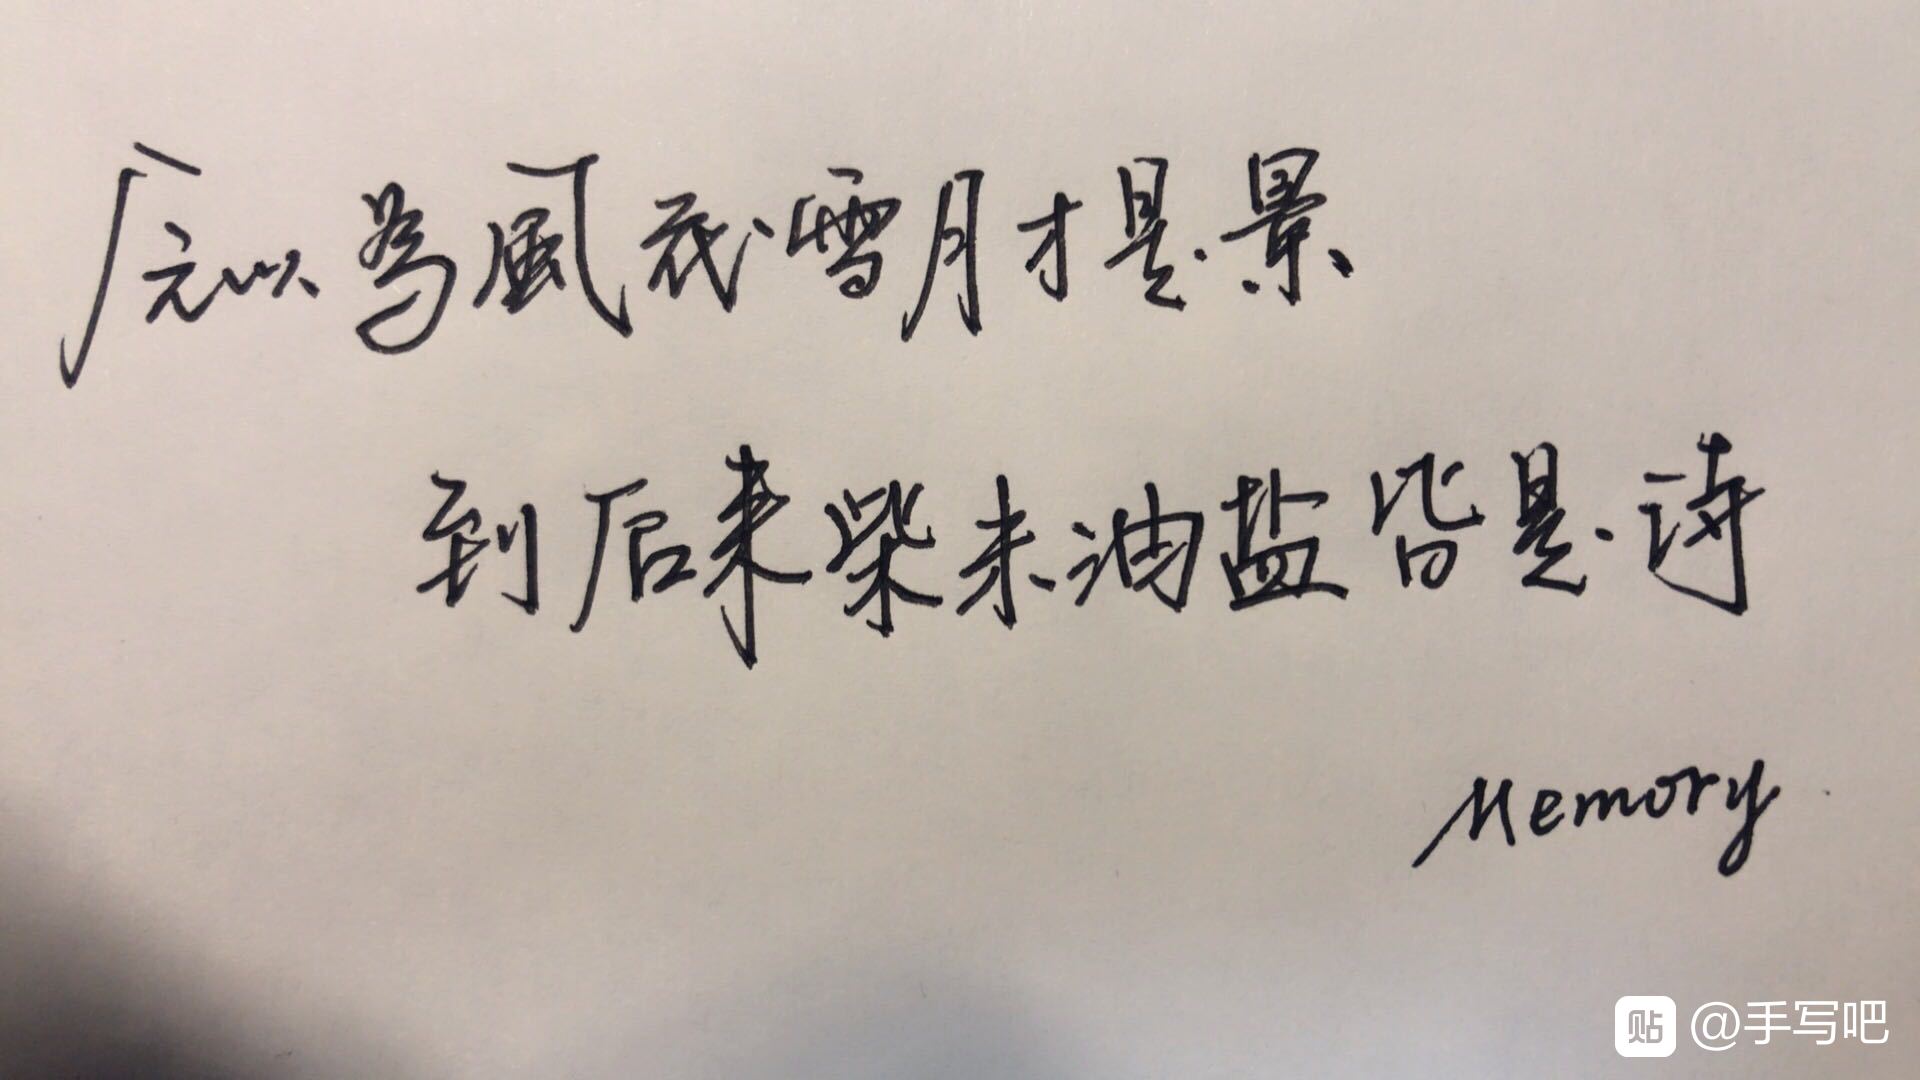 原以為風花雪月才是景
到后来柴米油盐皆是诗
Memory
贴 @手写吧